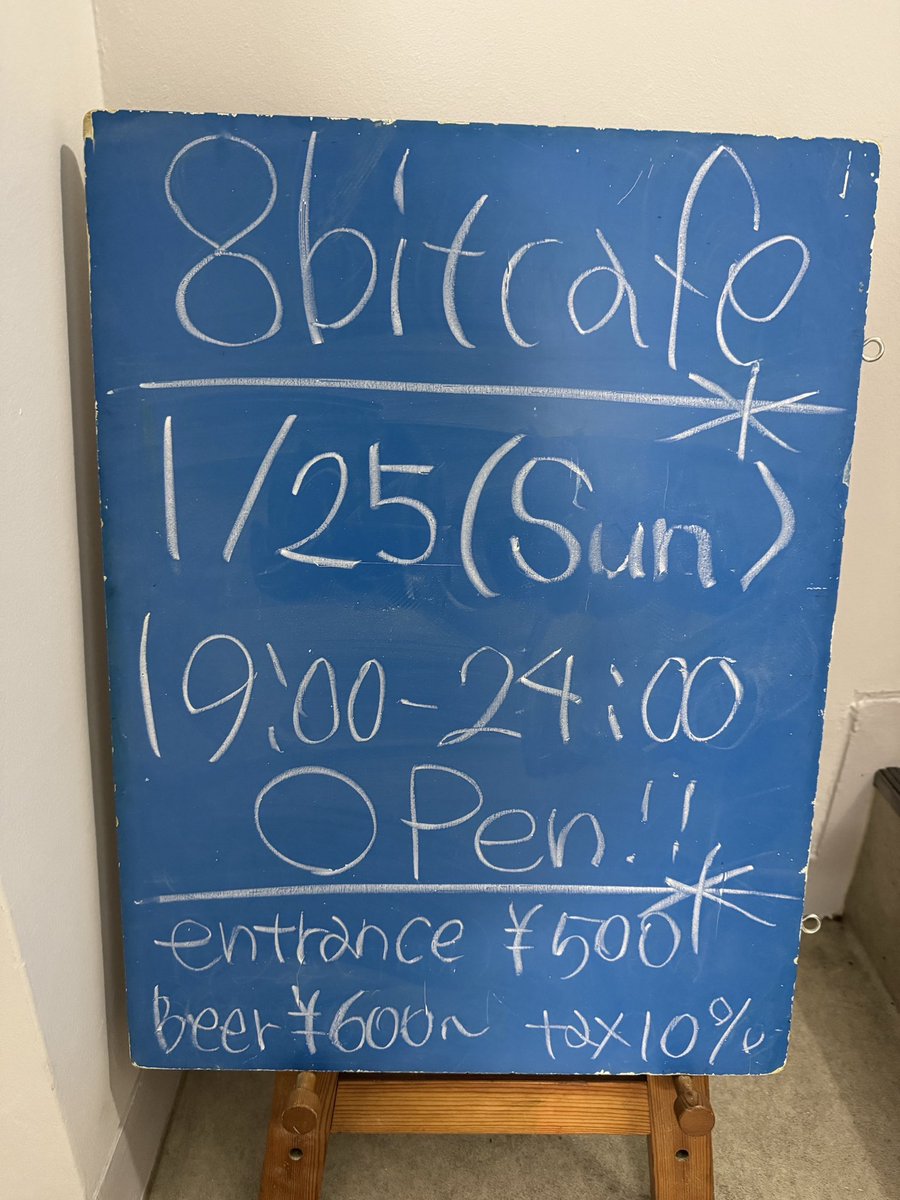 8bitcafe
1/25(Sun)
19:00-24:00
OPen!!
entrance ¥500
Beer ¥600~ tax10%